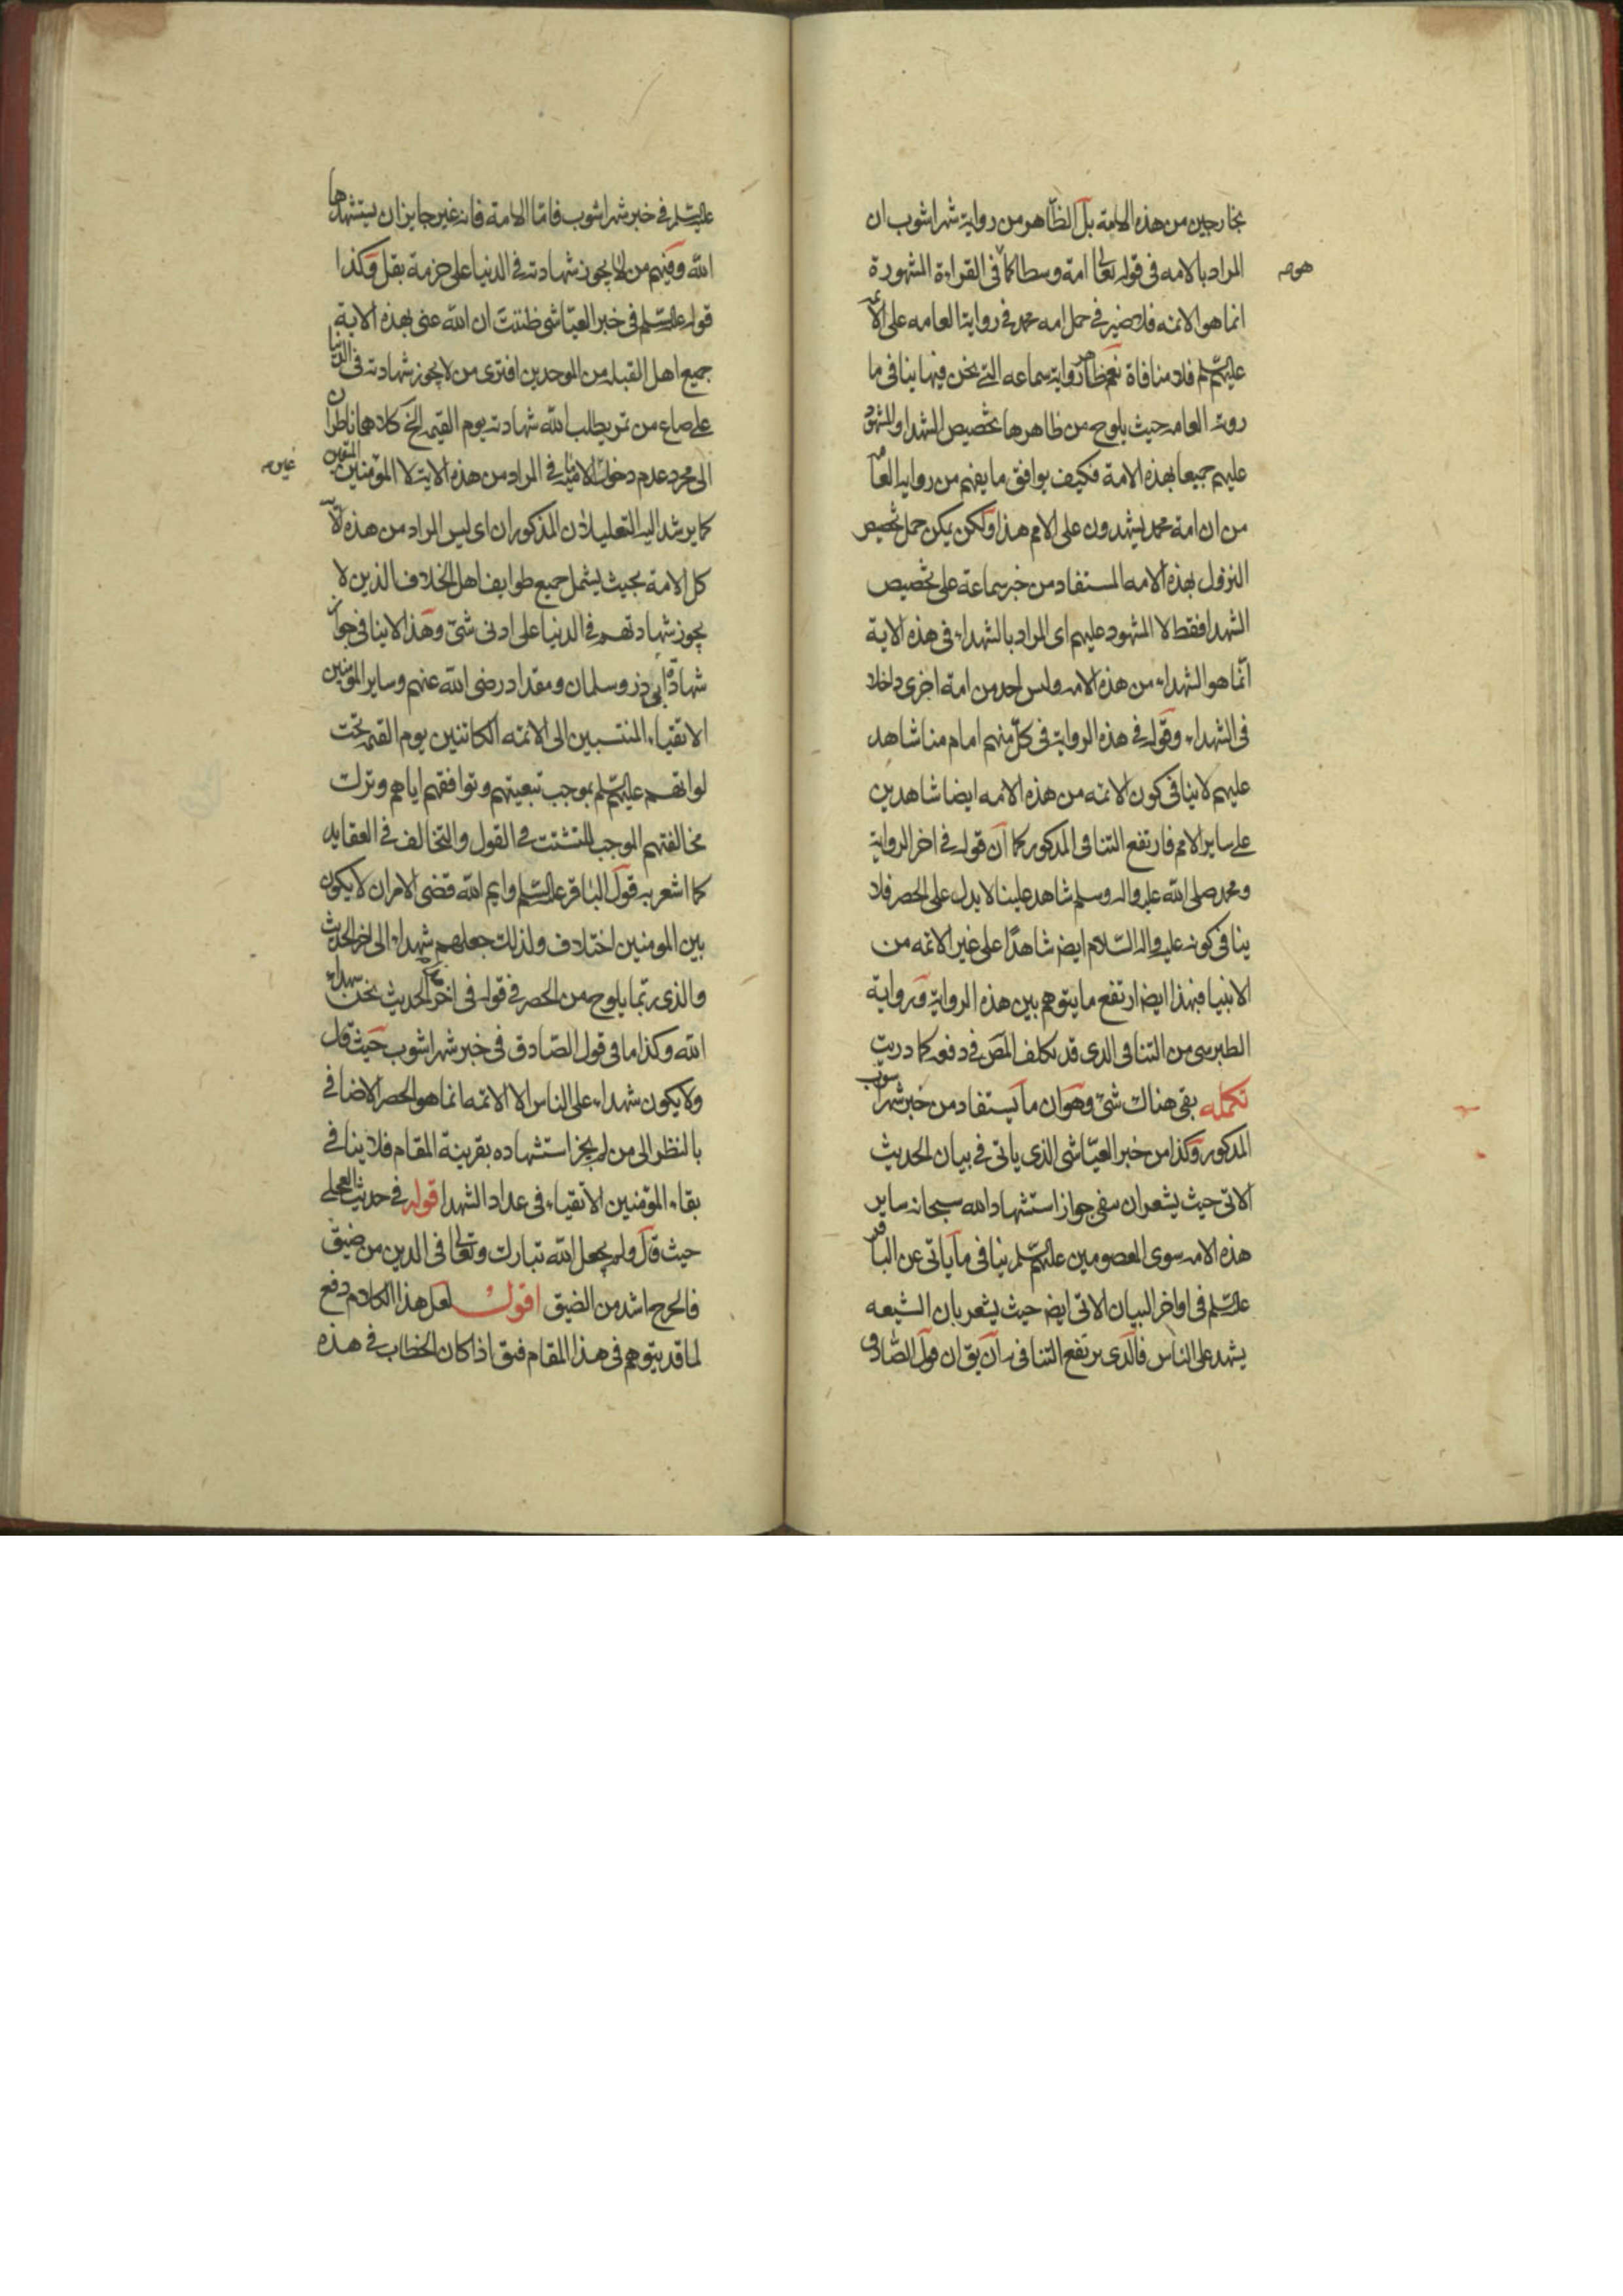 بخارجين من هذه الامة بل الظاهر من رواية شهراشوب ان
المراد بالامه فى قوله تعالى امة وسطا كما فى القراءة المشهورة
هو صه
انما هو الائمه فلا ضير فى حمل امه محمد فى رواية العامه على الائمه
عليهم السلم فلا منافاة نعم ظاهر رواية سماعه التى نحن فيها ينافى ما
روته العامه حيث يلوح من ظاهرها تخصيص الشهدا والمشهود
عليهم جميعا بهذه الامة فكيف يوافق ما يفهم من رواية العامه
من ان امة محمد يشهدون على الامم هذا ولكن يمكن حمل تخصيص
النزول بهذه الامه المستفاد من خبر سماعة على تخصيص
الشهدا فقط لا المشهود عليهم اى المراد بالشهداء فى هذه الاية
انّما هو الشهداء من هذه الامه وليس احد من امة اخرى داخلا
فى الشهداء وقوله فى هذه الرواية فى كلّ منهم امام منا شاهد
عليهم لا ينافى كون الائمه من هذه الامه ايضا شاهدين
على ساير الامم فارتفع التنافى المذكور كما ان قوله فى اخر الرواية
ومحمد صلى الله عليه واله وسلم شاهد علينا لا يدل على الحصر فلا
ينافى كونه عليه واله السّلام ايضا شاهدًا على غير الائمه من
الانبيا فبهذا ايضا ارتفع ما يتوهم بين هذه الرواية ورواية
الطبرسى من التنافى الذى قد تكلف المص فى دفعه كما دريت
تكمله بقى هناك شئ وهو ان ما يستفاد من خبر شهراشوب
المذكور وكذا من خبر العيّاشى الذى ياتى فى بيان الحديث
الاتى حيث يشعران بنفى جواز استشهاد الله سبحانه ساير
هذه الامه سوى المعصومين عليهم السلم ينافى ما ياتى عن الباقر
عليه السلم فى اواخر البيان الاتى ايضا حيث يشعر بان الشيعه
يشهد على الناس فالذى يرتفع التنافى به ان يق ان قول الصّادق
عليه السلم فى خبر شهراشوب فامّا الامة فانه غير جايز ان يستشهدها
الله وفيهم من لا يجوز شهادته فى الدنيا على حزمة بقل وكذا
قوله عليه السلم فى خبر العيّاشى ظننت ان الله عنى بهذه الاية
جميع اهل القبلة من الموحدين افترى من لا يجوز شهادته فى الدنيا
على صاع من تمر يطلب الله شهادته يوم القيمة الخ كلاهما ناظران
الى مجرد عدم دخول الامة فى المراد من هذه الاية لا المؤمنين المتقين
غير صه
كما يرشد اليه التعليلان المذكوران اى ليس المراد من هذه الاية
كل الامة بحيث يشمل جميع طوايف اهل الخلاف الذين لا
يجوز شهادتهم فى الدنيا على ادنى شئ وهذا لا ينافى جواز
شهادة ابى ذر وسلمان ومقداد رضى الله عنهم وساير المؤمنين
الاتقياء المنتسبين الى الائمه الكائنين يوم القيمة تحت
لوائهم عليهم السلم بموجب تبعيتهم وتوافقهم اياهم وترك
مخالفتهم الموجب للتشتت فى القول والتخالف فى العقايد
كما اشعر به قول الباقر عليه السلم وايم الله قضى الامر ان لا يكون
بين المومنين اختلاف ولذلك جعلهم شهداء الى اخر الحديث
والذى ربّما يلوح من الحصر فى قوله فى اخر الحديث نحن شهداء
الله وكذا ما فى قول الصّادق فى خبر شهراشوب حيث قال
ولا يكون شهداء على الناس الا الائمه انما هو الحصر الاضافى
بالنظر الى من لم يجز استشهاده بقرينة المقام فلا ينافى
بقاء المؤمنين الاتقياء فى عداد الشهدا قوله فى حديث العجلى
حيث قال ولم يجعل الله تبارك وتعالى فى الدين من ضيق
فالحرج اشد من الضيق اقول لعل هذا الكلام دفع
لما قد يتوهم فى هذا المقام فيق اذا كان الخطاب فى هذه